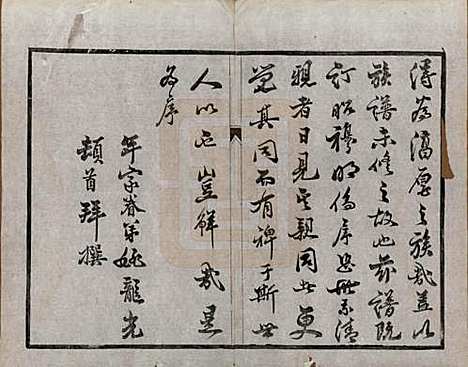 得為湻厚之族哉蓋以
族譜未修之故也茲譜既
訂昭穆明倫序思世系清
親者日見其親同此更
覺其同而有裨于斯世
人心也豈鮮哉是
為序
年宗眷弟姚龍光
頓首拜撰